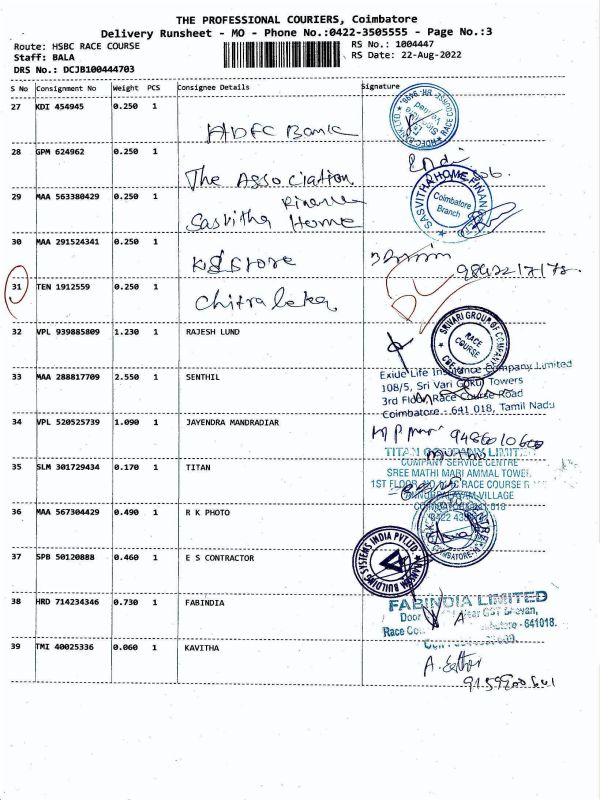 THE PROFESSIONAL COURIERS, Coimbatore
Delivery Runsheet - MO - Phone No.:0422-3505555 - Page No.:3
Route: HSBC RACE COURSE
RS No.: 1004447
Staff: BALA
RS Date: 22-Aug-2022
DRS No.: DCJB100444703
S No Consignment No Weight PCS Consignee Details Signature
27 KDI 454945 0.250 1
HDFC Bank
28 GPM 624962 0.250 1
The Association
29 MAA 563380429 0.250 1
Finance
Sasvitha Home
SASVITHA HOME FINAN
Coimbatore
Branch
30 MAA 291524341 0.250 1
Store
31 TEN 1912559 0.250 1
Chitraleka
32 VPL 939885809 1.230 1 RAJESH LUND
SRIVARI GROUP OF COMPANY
RACE
COURSE
33 MAA 288817709 2.550 1 SENTHIL
Exide Life Insurance Company Limited
108/5, Sri Vari Gokul Towers
3rd Floor, Race Course Road
Coimbatore - 641 018, Tamil Nadu
34 VPL 520525739 1.090 1 JAYENDRA MANDRADIAR
TITAN COMPANY LIMIT
COMPANY SERVICE CENTRE
35 SLM 301729434 0.170 1 TITAN
SREE MATHI MARI AMMAL TOWER
1ST FLOOR RACE COURSE R
VILLAGE
36 MAA 567304429 0.490 1 R K PHOTO
COIMBATORE
37 SPB 50120888 0.460 1 E S CONTRACTOR
BUILDING SYSTEMS INDIA PVT.LTD
38 HRD 714234346 0.730 1 FABINDIA
FABINDIA LIMITED
Door Near GST Bhavan,
Race - 641018.
39 TMI 40025336 0.060 1 KAVITHA